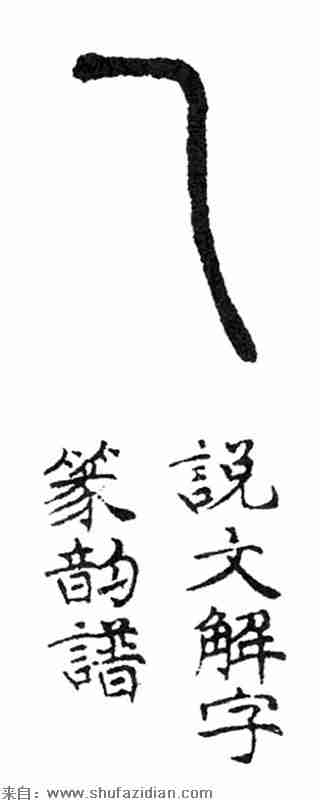 説文解字
篆韵譜
来自：www.shufazidian.com